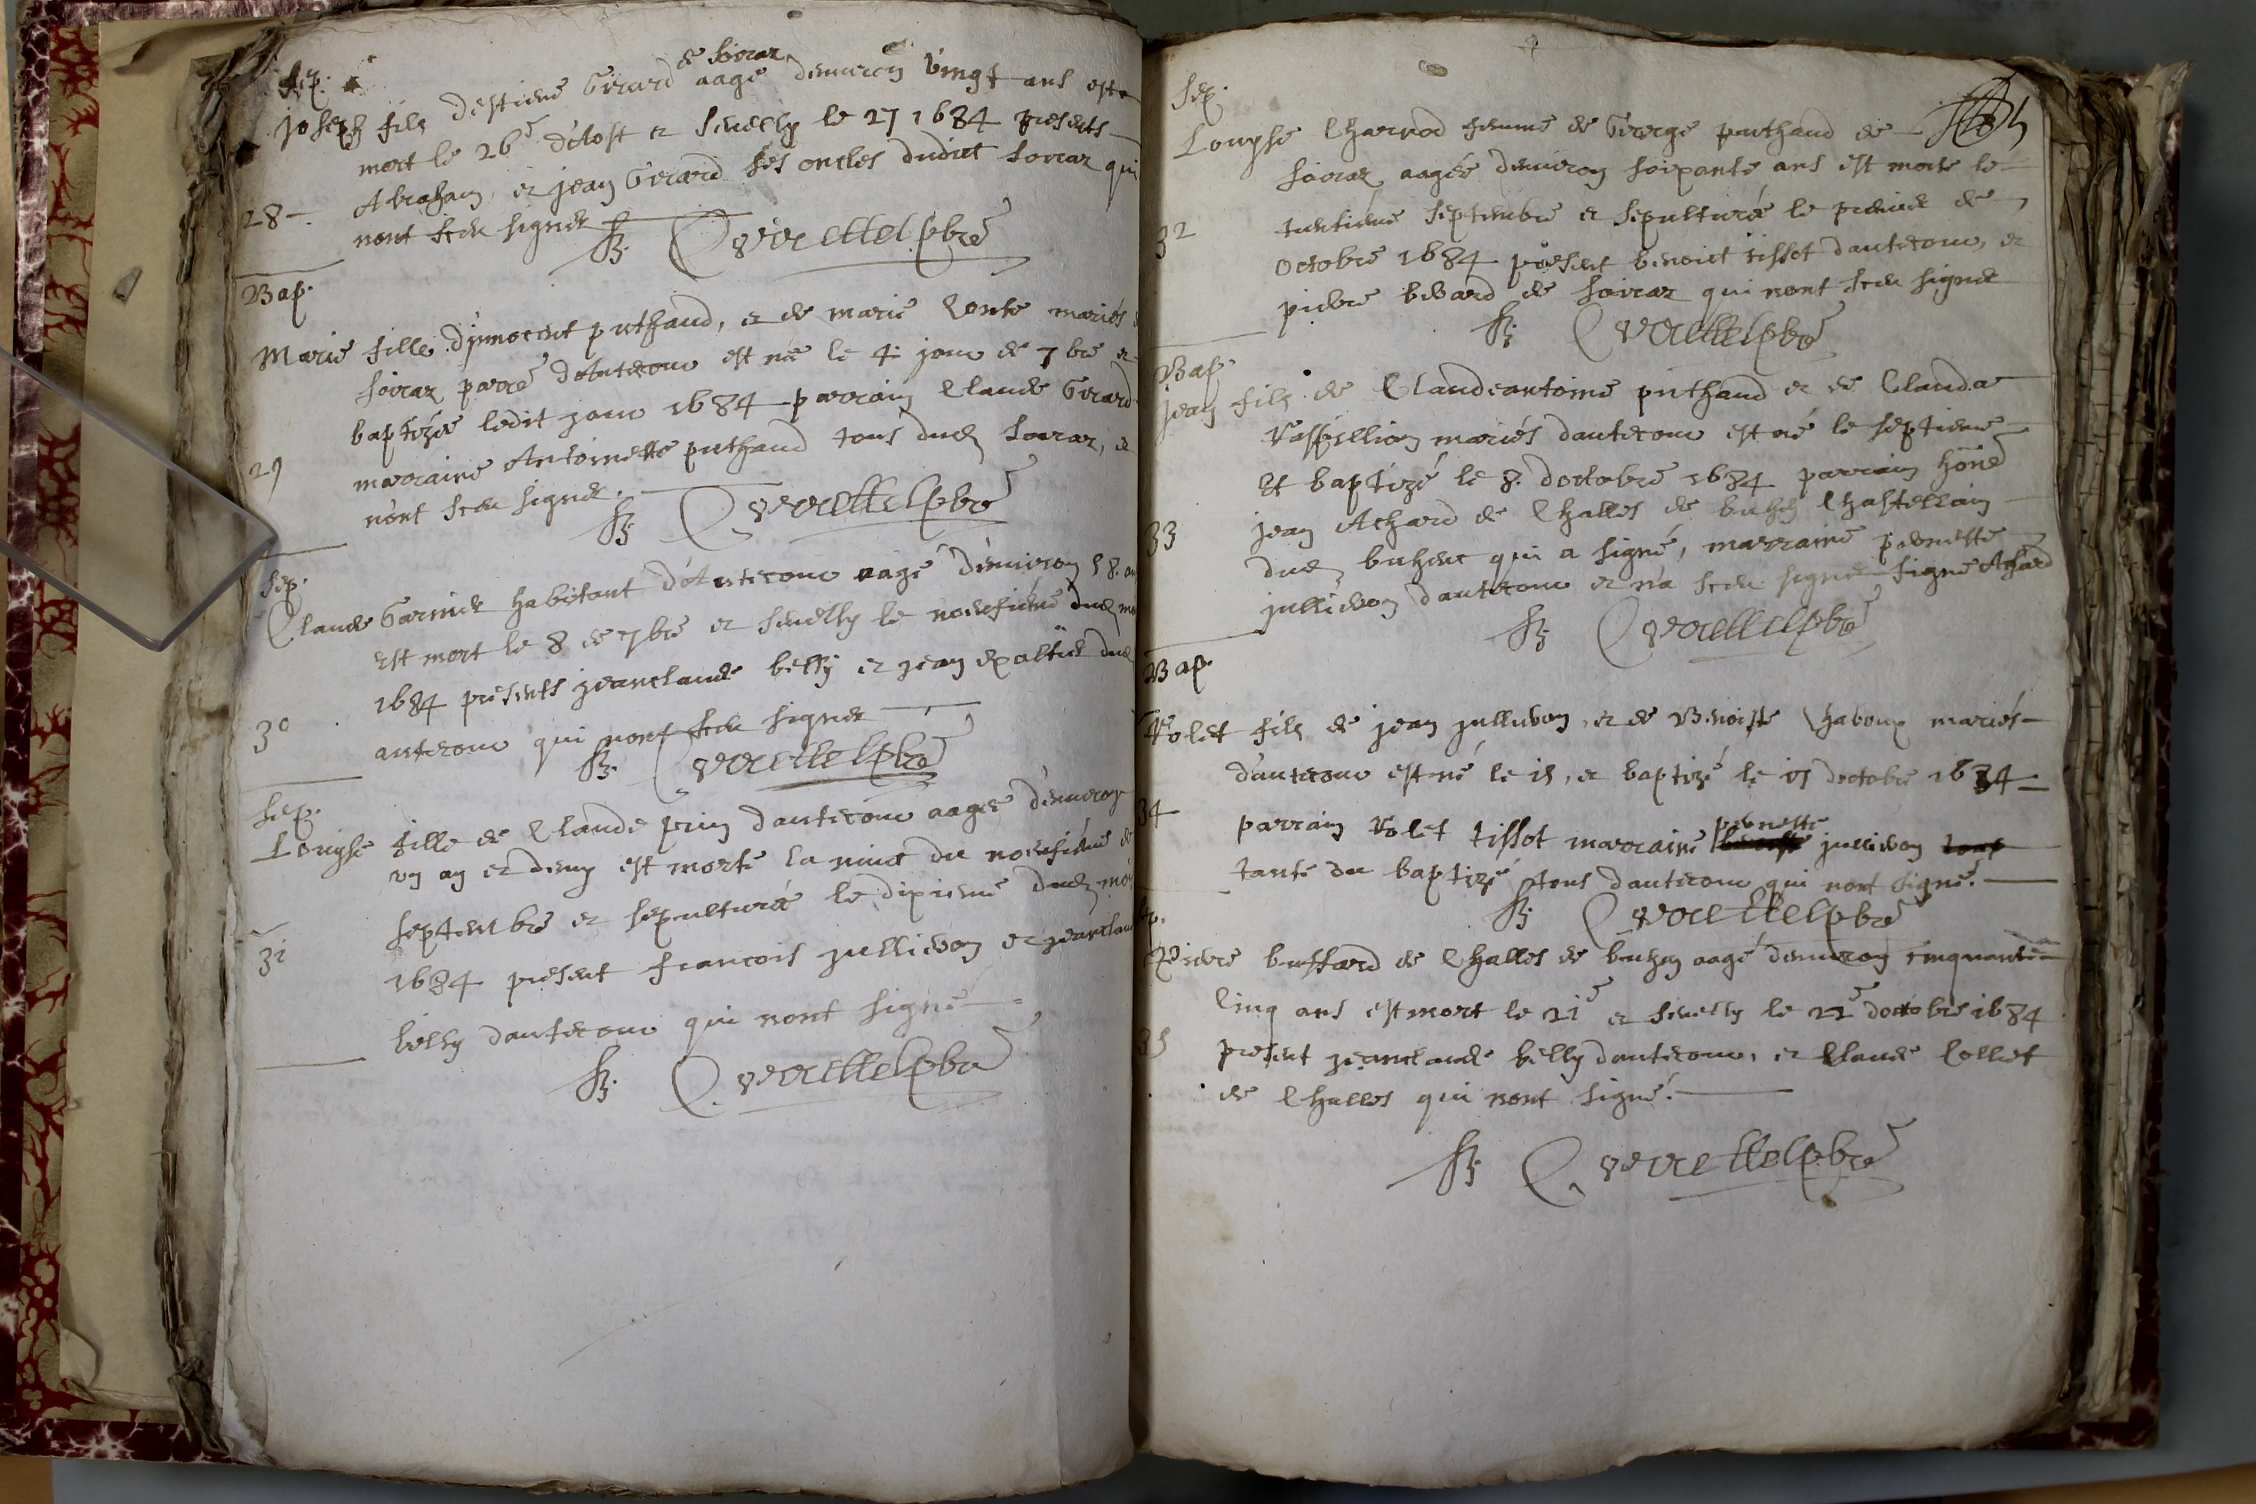 Sep.
de sovraz
Joseph fils destiene Girard aagé denviron vingt ans est
mort le 26e d'Aost et sevelly le 27 1684 presents
Abraham et jean Girard ses oncles dudict sovraz qui
28
nont sceu signer
Bap.
Marie fille d'jnnocent puthaud, et de marie Conte mariés
sovraz parre d'Antecour est née le 4e jour de 7bre et
baptizée ledit jour 1684 parrain Claude Girard
29
marraine Antoinette puthaud tous dud sovraz, et
nont sceu signer.
Sep.
Claude Garnier habitant d'Antecour aagé d'environ 58. ans
Est mort le 8 de 7bre et sevelly le neuefiéme dud
1684 presents jeanclaude belly et jean dud
30
antecour qui nont sceu signer
Sep.
Louyse fille de Claude prin dantecour aagee d'environ
vn an et demy est morte la nuict du neuefiéme de
septembre et sepulturée le dixieme dud mois
31
1684 present francois jullieron et jeanclaude
belly dantecour qui nont signé
Sep.
Louyse Charrod femme de George puthaud de
sovraz aagée denviron soixante ans est morte le
trentieme septembre et sepulturée le premier de
32
octobre 1684 present benoict tissot dantecour, et
pierre bevard de sovraz qui nont sceu signer
Bap.
jean fils de Claudeantoine puthaud et de Clauda
Vassillion mariés dantecour est né le septieme
Et baptizé le 8. doctobre 1684 parrain
33
jean Achard de Challes de Chastellain
dud qui a signé, marraine pernette
jullieron dantecour et n'a sceu signer signé Achard
Bap.
Volet fils de jean jullieron, et de Benoiste Chaboux mariés
d'antecour est né le 15, et baptizé le 15 doctobre 1684
34
pernette
parrain Volet tissot marraine jullieron
tante du baptizé tous dantecour qui nont signé.
Sep.
Pierre buffard de Challes de aagé denviron cinquante
Cinq ans est mort le 21e et sevelly le 22e doctobre 1684
35
present jeanclaude belly dantecour, et Claude Collet
de Challes qui nont signé.